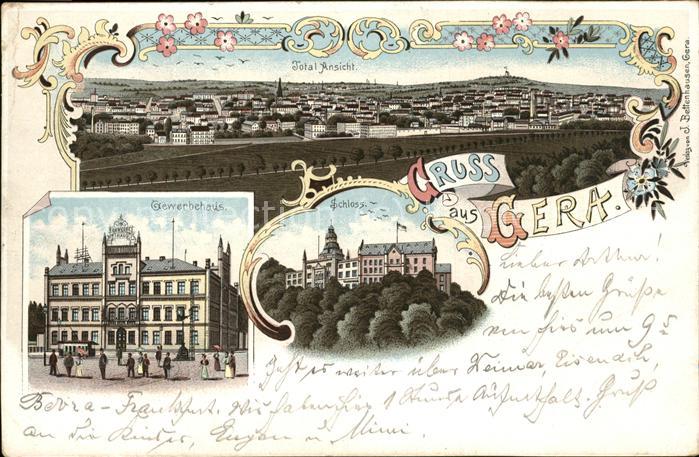 Total Ansicht.
Verlag von J. Bettenhausen, Gera.
GRUSS
aus
GERA.
Gewerbehaus.
Schloss.
Lieber Arthur!
Die besten Grüße
von hier um
geht es weiter über Weimar, Eisenach,
Bebra - Frankfurt. Wir haben hier 1 Stunde Aufenthalt. Gruß
an die Kinder, Eugen u. Mimi.